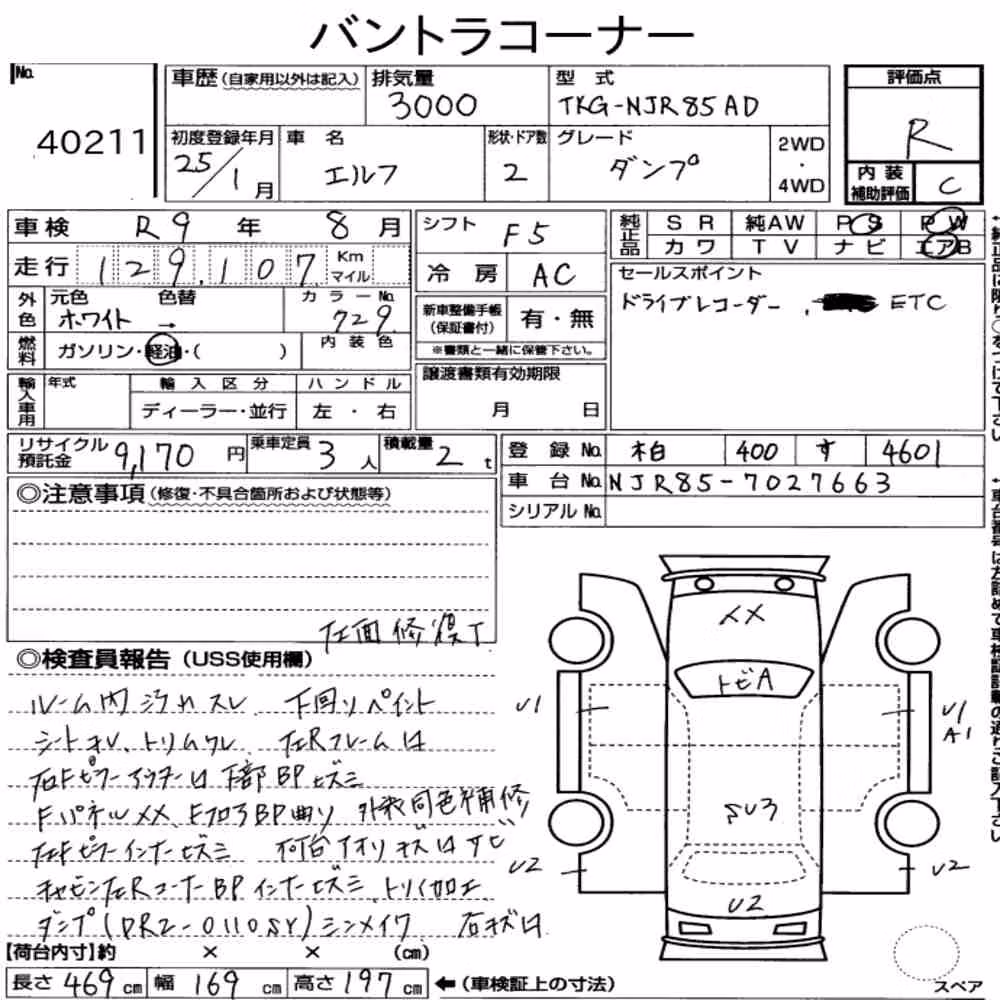 バントラコーナー
No. 40211
車歴(自家用以外は記入) 排気量 3000 型式 TKG-NJR85AD
評価点 R
初度登録年月 25/1月 車名 エルフ 形状・ドア数 2 グレード ダンプ 2WD・4WD
内装補助評価 C
車検 R9年 8月 シフト F5
純正品 SR 純AW PS PW
カワ TV ナビ エアB
走行 129,107 Km マイル 冷房 AC
セールスポイント
ドライブレコーダー , ETC
外色 元色 ホワイト 色替 → カラーNo. 729
新車整備手帳(保証書付) 有・無
※書類と一緒に保管下さい。
燃料 ガソリン・軽油・( ) 内装色
譲渡書類有効期限 月 日
輸入車用 年式 輸入区分 ハンドル
ディーラー・並行 左・右
リサイクル預託金 9,170円 乗車定員 3人 積載量 2t
登録No. 柏 400 す 4601
車台No. NJR85-7027663
シリアルNo.
◎注意事項(修復・不具合箇所および状態等)
左面修復丁
◎検査員報告(USS使用欄)
ルーム内 汚れ スレ 下回り ペイント
シート オレ、トリム ワレ 左Rフレーム
右Fピラー 下部BP ヒズミ
Fパネル メメ、Fフロア BP 曲リ 外装同色補修
左Fピラー インナー ヒズミ 荷台 キズ サビ
キャビン左Rコーナー BP インナー ヒズミ
ダンプ(DR2-0110SY)シンメイワ
【荷台内寸】約 × × (cm)
長さ 469 cm 幅 169 cm 高さ 197 cm ←(車検証上の寸法)
メメ
トビA
U1
U1
A1
SU3
U2
U2
U2
スペア